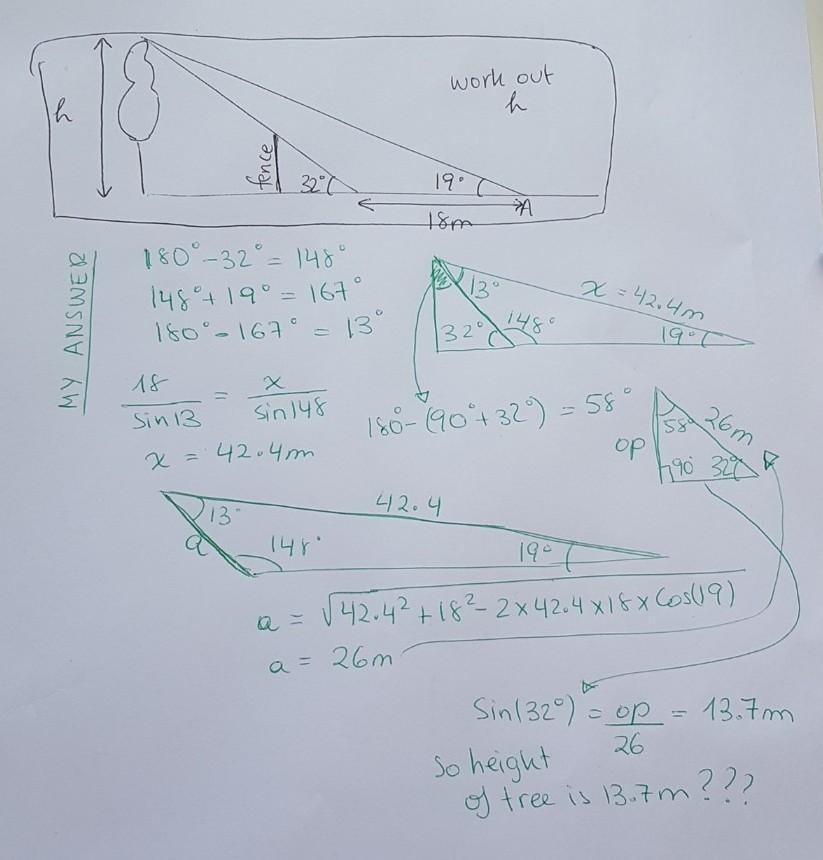 work out
h
h
fence
32°
19°
A
18m
MY ANSWER
180° - 32° = 148°
148° + 19° = 167°
180° - 167° = 13°
13°
x = 42.4m
32°
148°
19°
18/sin13 = x/sin148
x = 42.4m
180° - (90° + 32°) = 58°
58°
26m
op
90
32°
13°
42.4
a
148°
19°
a = √42.4² + 18² - 2 × 42.4 × 18 × Cos(19)
a = 26m
Sin(32°) = op/26 = 13.7m
So height
of tree is 13.7m???